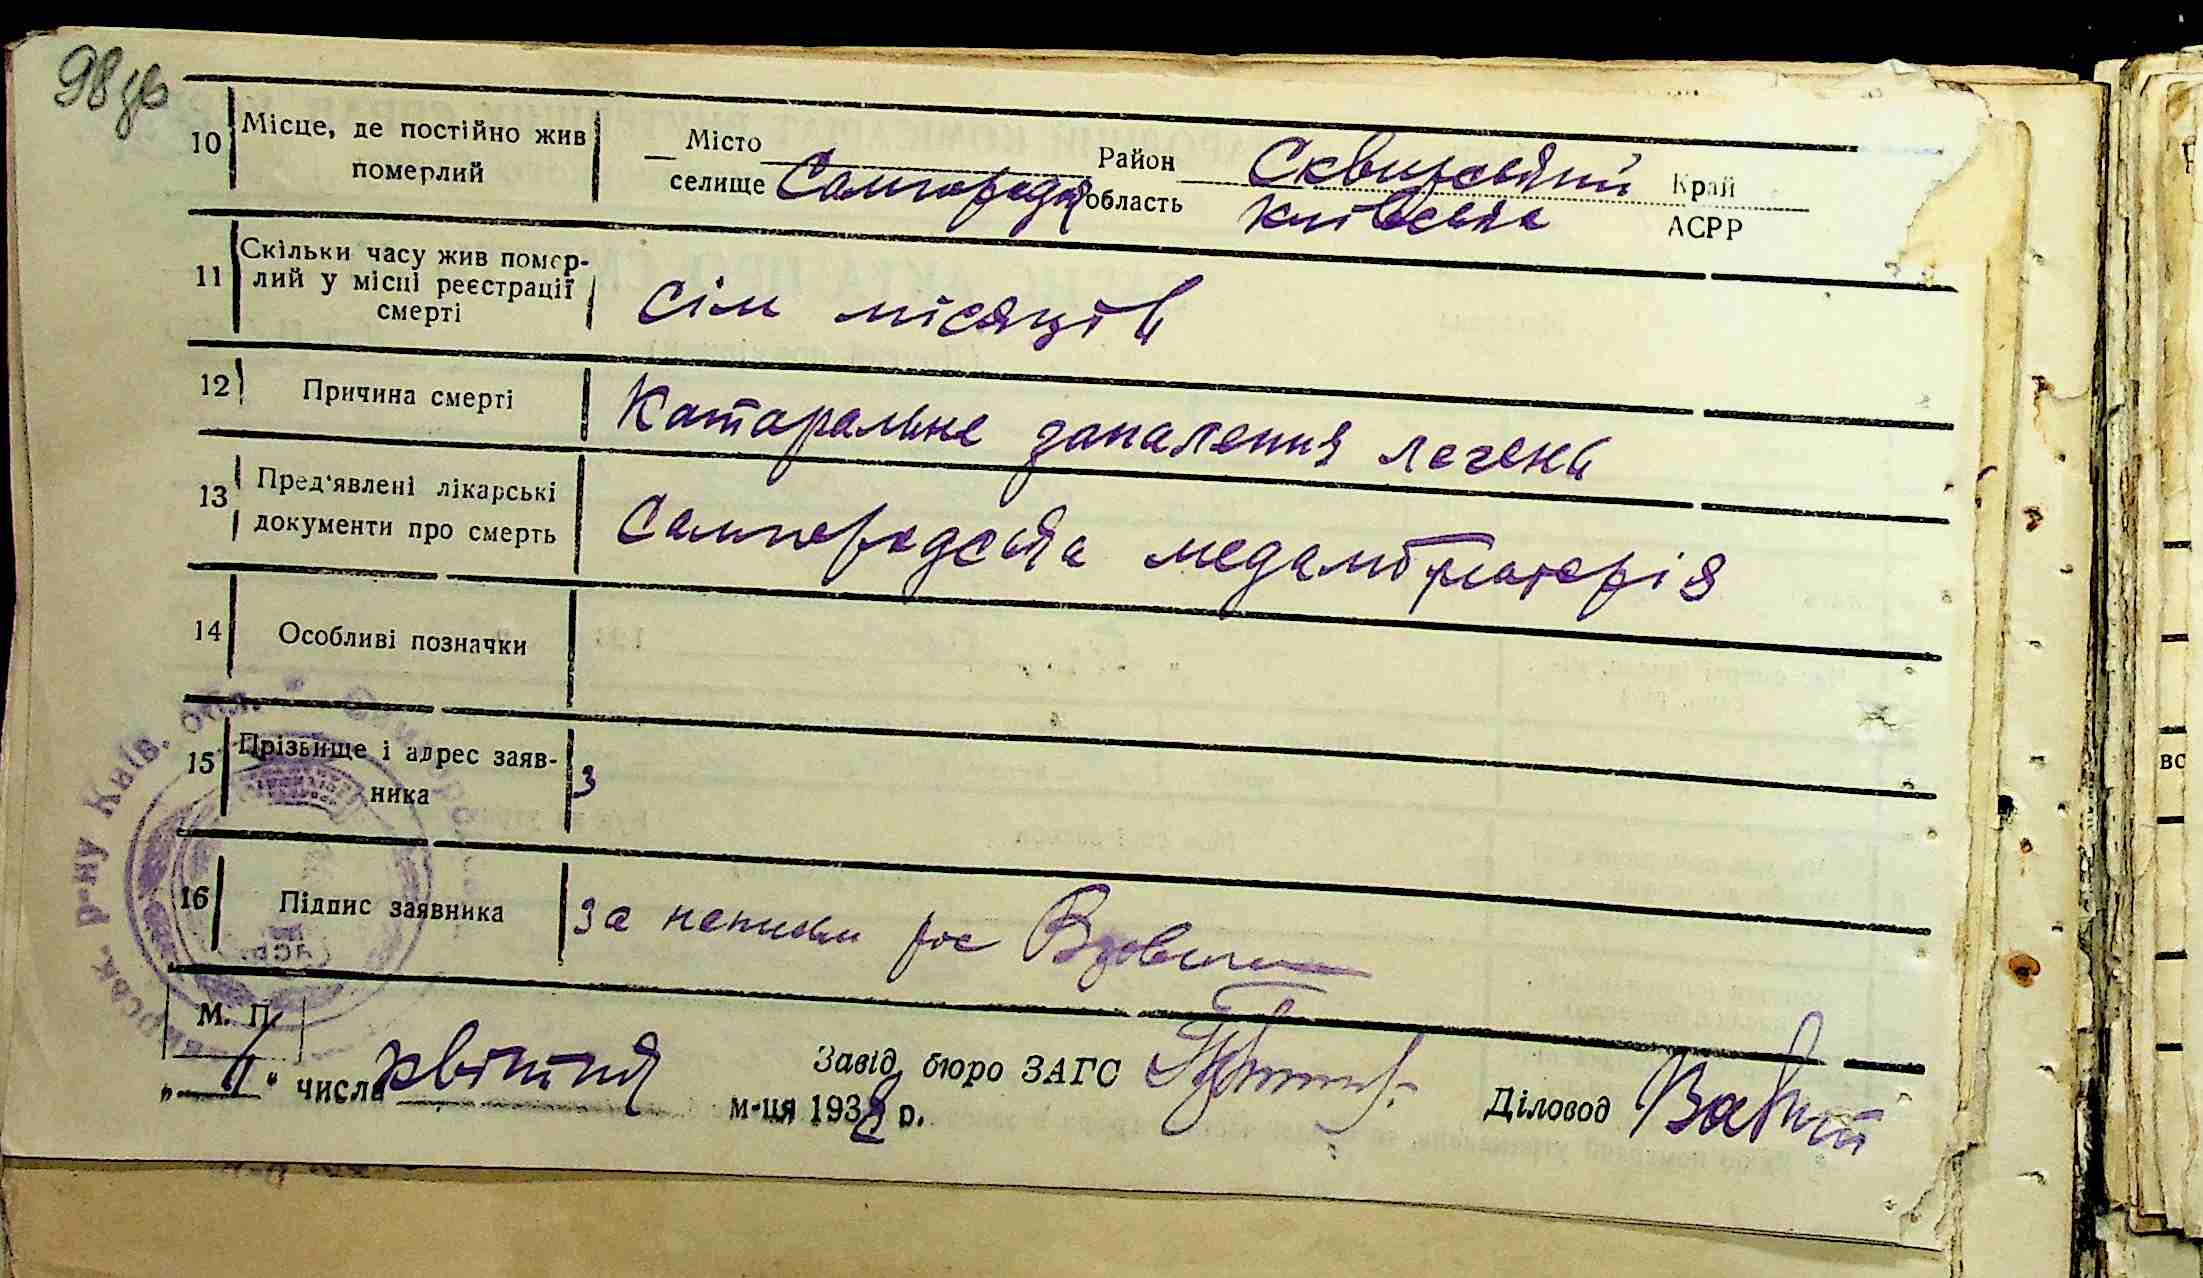 98 зв
10 Місце, де постійно жив померлий
Місто
селище Самгородок Район Сквирський Край
область Київська АСРР
11 Скільки часу жив помер-
лий у місці реєстрації
смерті
сім місяців
12 Причина смерті Катаральне запалення легенів
13 Пред'явлені лікарські
документи про смерть
Самгородська медамбулаторія
14 Особливі позначки
15 Прізвище і адрес заяв-
ника
З
16 Підпис заявника за неписьм рос
М. П.
числа квітня м-ця 1938 р.
Завід. бюро ЗАГС
Діловод
р-ну Київ. обл.